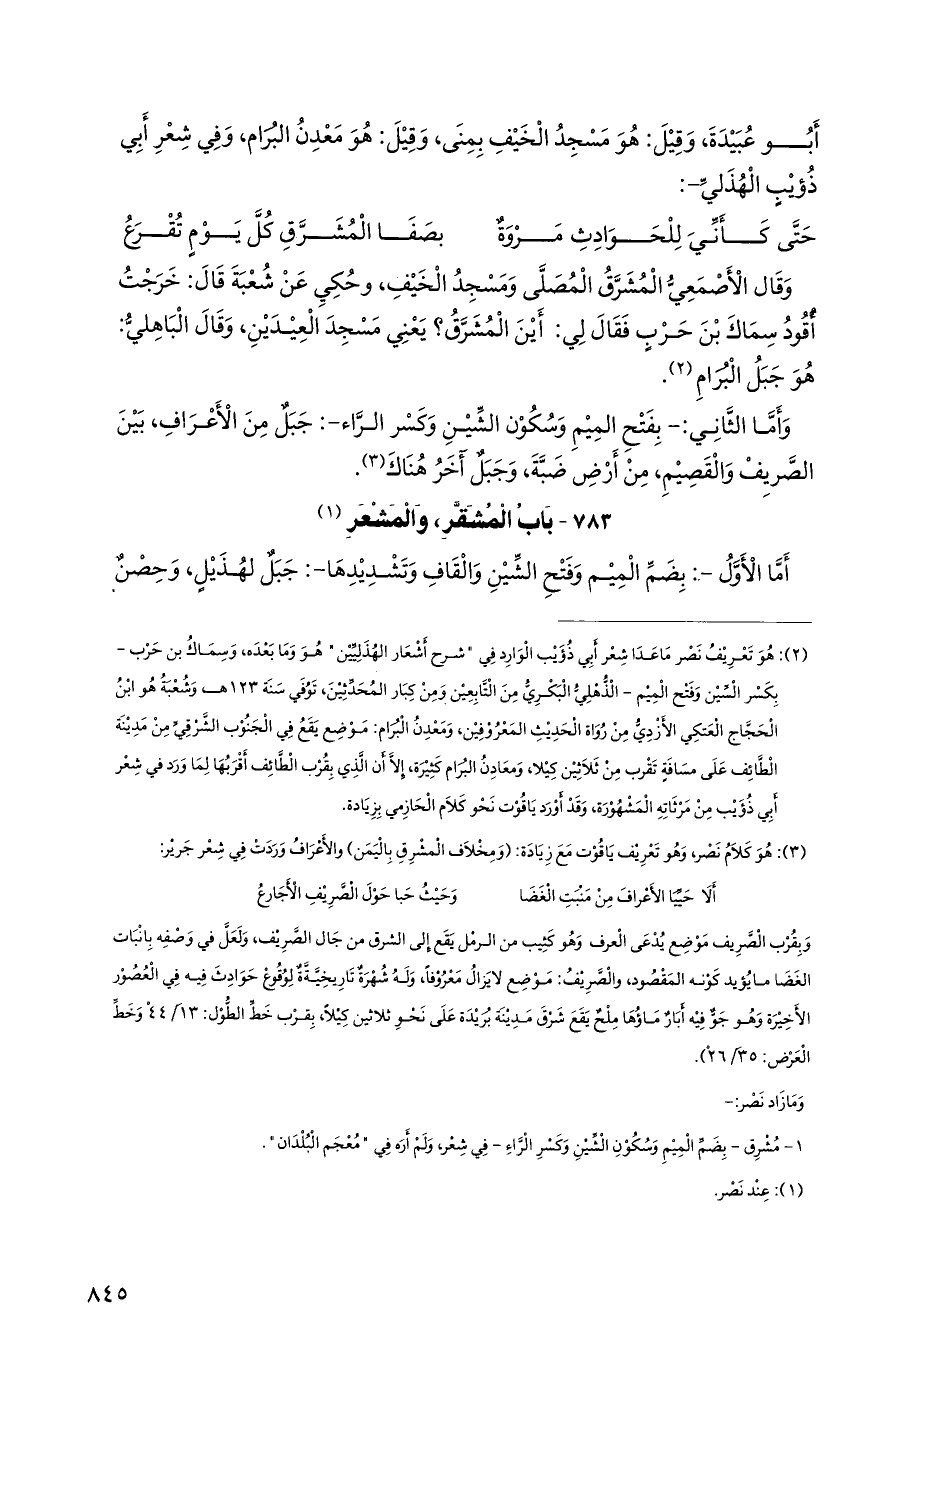 أَبُـــو عُبَيْدَةَ، وَقِيْلَ: هُوَ مَسْجِدُ الْخَيْفِ بِمِنَى، وَقِيْلَ: هُوَ مَعْدِنُ البُرَام، وَفِي شِعْرِ أَبِي
ذُؤَيْبٍ الْهُذَلِيِّ-:
حَتَّى كَـــأَنِّـيَ لِلْحَـــوَادِثِ مَـــرْوَةٌ بصَفَـــا الْمُشَـــرَّقِ كُلَّ يَـــوْمٍ تُقْـــرَعُ
وَقَال الْأَصْمَعِيُّ الْمُشَرَّقُ الْمُصَلَّى وَمَسْجِدُ الْخَيْفِ، وحُكِي عَنْ شُعْبَةَ قَالَ: خَرَجْتُ
أَقُودُ سِمَاكَ بْنَ حَرْبٍ فَقَالَ لِي: أَيْنَ الْمُشَرَّقُ؟ يَعْنِي مَسْجِدَ الْعِيْـدَيْنِ، وَقَالَ الْبَاهِلِيُّ:
هُوَ جَبَلُ الْبُرَامِ (٢).
وَأَمَّا الثَّانِـي:- بِفَتْحِ المِيْمِ وَسُكُوْن الشِّيْـنِ وَكَسْر الـرَّاء-: جَبَلٌ مِنَ الْأَعْـرَافِ، بَيْنَ
الصَّرِيفِ وَالْقَصِيْمِ، مِنْ أَرْضِ ضَبَّةَ، وَجَبَلٌ آخَرُ هُنَاكَ(٣).
٧٨٣ - بَابُ الْمُشَقَّرِ، وَالْمَشْعَرِ (١)
أَمَّا الْأَوَّلُ -: بِضَمِّ الْمِيْـم وَفَتْحِ الشِّيْنِ وَالْقَافِ وَتَشْـدِيْدِهَا-: جَبَلٌ لهُـذَيْلٍ، وَحِصْنٌ
(٢): هُوَ تَعْـرِيْفُ نَصْر مَاعَـدَا شِعْر أَبِي ذُؤَيْب الْوَارِد فِي "شـرح أَشْعَار الهُذَلِيِّيْن" هُـوَ وَمَا بَعْدَه، وَسِمَـاكُ بن حَرْب -
بِكَسْر السِّيْن وَفَتْح الْمِيْم - الذُّهْلِيُّ الْبَكْرِيُّ مِنَ التَّابِعِيْن وَمِنْ كِبَار المُحَدِّثِيْنَ، تَوُفِّي سَنَة ١٢٣هـ، وَشُعْبَةُ هُو ابْنُ
الْحَجَّاج الْعَتَكِي الأَزْدِيُّ مِنْ رُوَاة الْحَدِيْث الْمَعْرُوْفِيْن، وَمَعْدِنُ الْبُرَام: مَـوْضِع يَقَعُ فِي الْجَنُوْب الشَّرْقِيِّ مِنْ مَدِيْنَة
الْطَّائِف عَلَى مَسَافَةٍ تَقْرب مِنْ ثَلَاثِيْن كِيْلا، وَمَعَادِنُ الْبُرَام كَثِيْرَة، إِلاَّ أَن الَّذِي بِقُرْب الْطَّائِف أَقْرَبُهَا لِمَا وَرَد في شِعْر
أَبِي ذُؤَيْب مِنْ مَرْثَاتِه الْمَشْهُوْرَة، وَقَدْ أَوْرَد يَاقُوْت نَحْو كَلَام الْحَازِمي بِزِيَادة.
(٣): هُوَ كَلاَمُ نَصْر، وَهُو تَعْرِيْف يَاقُوْت مَع زِيَادَة: (وَمِخْلَاف الْمَشْرِق بِالْيَمَن) والأَعْرَافُ وَرَدَتْ فِي شِعْر جَرِيْر:
أَلَا حَيِّيَا الأَعْرافَ مِنْ مَنْبَتِ الْغَضَا وَحَيْثُ حَبا حَوْلَ الصَّرِيْفِ الْأَجَارعُ
وَبِقُرْب الصَّرِيف مَوْضِع يُدْعَى الْعرف وَهُو كَثِيب من الـرمْل يَقَع إِلى الشرق من جَال الصَّرِيْف، وَلَعَلَّ في وَصْفِه بِإِنْبَات
الغَضَا مـايُؤيد كَوْنـه المَقْصُود، والصَّرِيْفُ: مَـوْضِع لايَزالُ مَعْرُوْفاً، وَلَـهُ شُهْرَةٌ تَارِيخِيَّـةٌ لِوُقُوعْ حَوَادِثَ فِيـه فِي الْعُصُوْر
الأَخِيْرَة وَهُـو جَوٌّ فِيْه أَبَارٌ مَـاؤُهَا مِلْحٌ يَقَعَ شَرْق مَـدِيْنَة بُرَيْدَة عَلَى نَحْـوِ ثَلاثين كِيْلاً، بِقُـرْب خَطِّ الطُّوْل: ١٣/ ٤٤ْ وَخَطِّ
الْعَرْض: ٣٥/ ٢٦ْ).
وَمَازَاد نَصْر:-
١- مُشْرِق - بِضَمِّ الْمِيْمِ وَسُكُوْنِ الْشِّيْنِ وَكَسْرِ الْرَّاءِ - فِي شِعْر، وَلَمْ أَرَه فِي "مُعْجَم الْبُلْدَان".
(١): عِنْد نَصْر.
٨٤٥